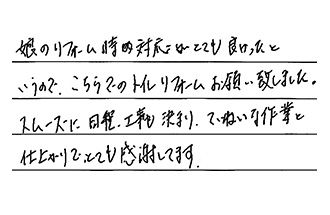 娘のリフォーム時の対応がとても良かったと
いうので、こちらでのトイレリフォームお願い致しました。
スムーズに日程、工事も決まり、ていねいな作業と
仕上がりでとても感謝してます。